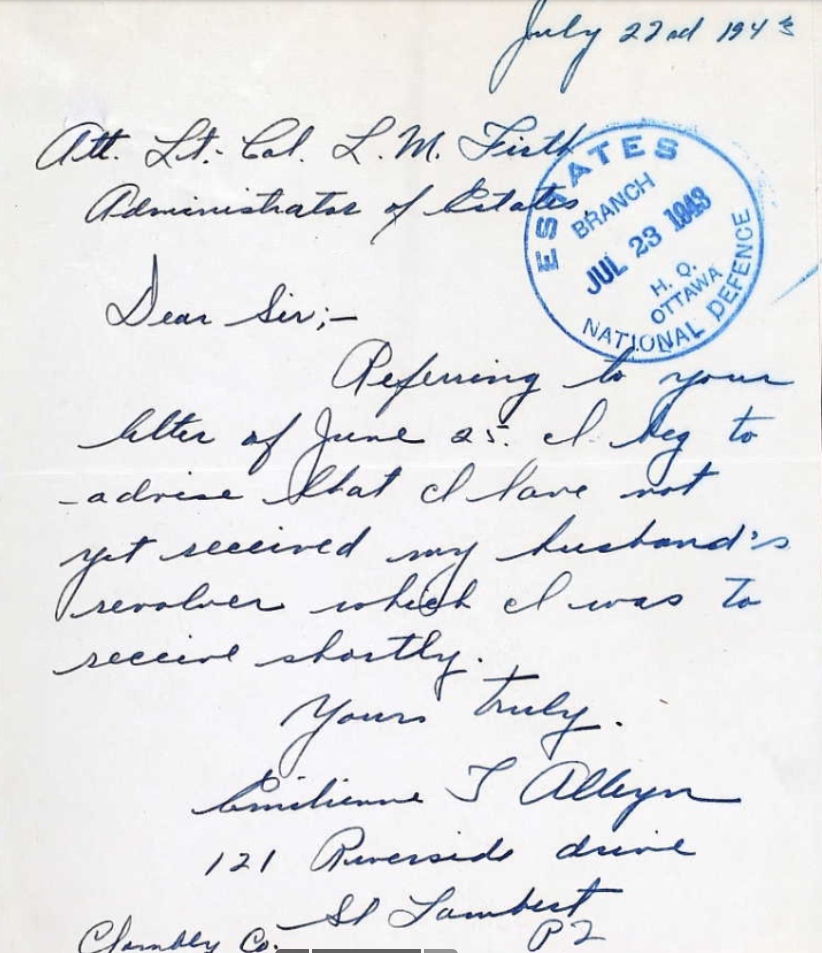 July 22nd 1943
Att. Lt.- Col. L. M. Firth
Administrator of Estates.
ESTATES
BRANCH
JUL 23 1943
H. Q.
OTTAWA
NATIONAL DEFENCE
Dear Sir;-
Referring to your
letter of June 25. I beg to
advise that I have not
yet received my husband's
revolver which I was to
receive shortly.
Yours truly.
Emilienne T Alleyn
121 Riverside drive
St Lambert
Chambly Co. PQ